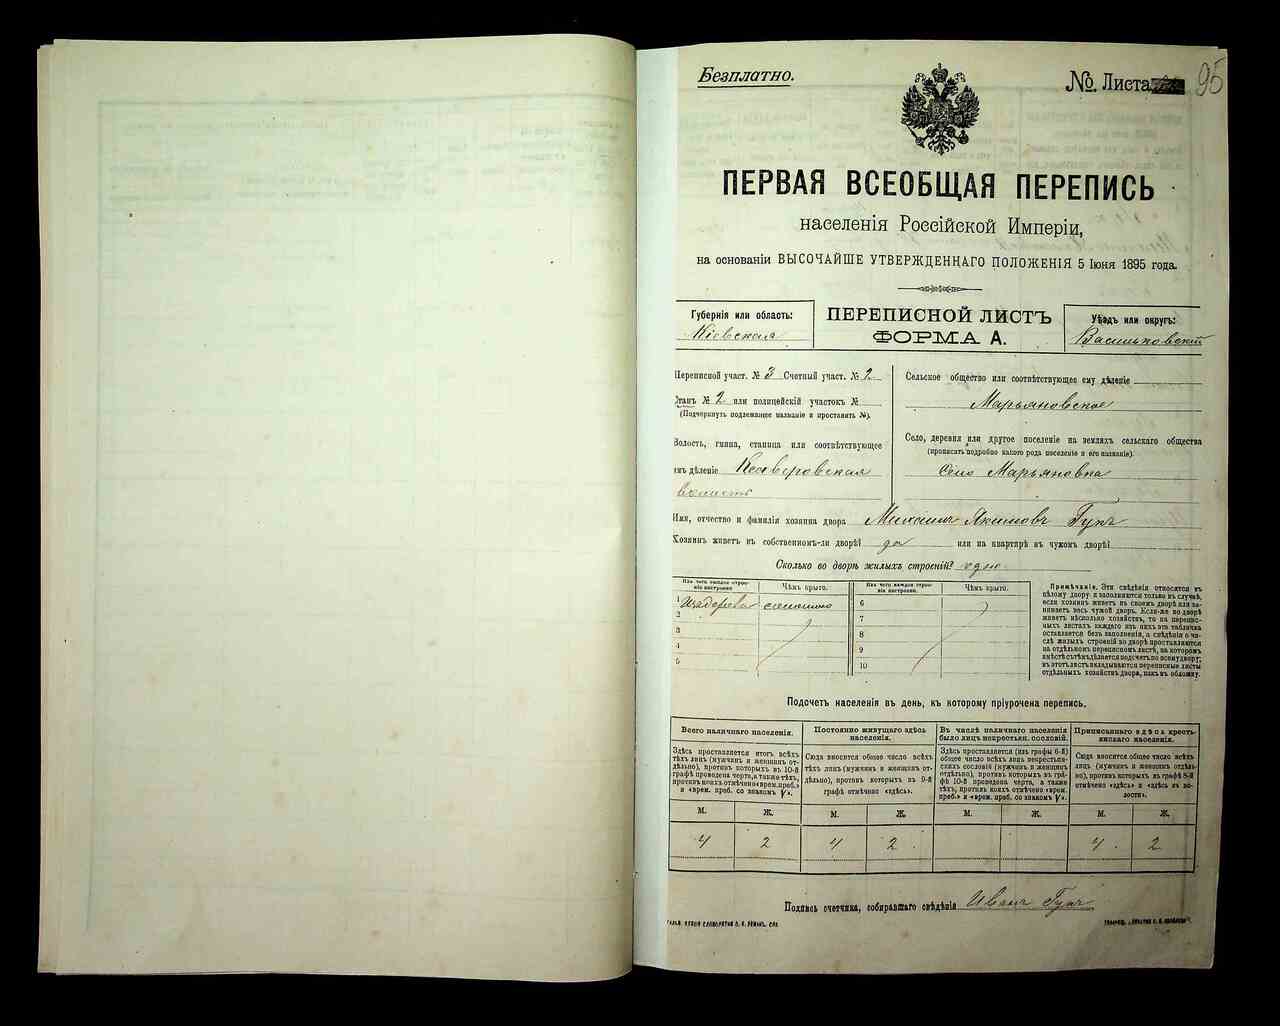 Безплатно.
№ Листа 95
ПЕРВАЯ ВСЕОБЩАЯ ПЕРЕПИСЬ
населенія Россійской Имперіи,
на основаніи ВЫСОЧАЙШЕ УТВЕРЖДЕННАГО ПОЛОЖЕНІЯ 5 Іюня 1895 года.
Губернія или область:
Кіевская
ПЕРЕПИСНОЙ ЛИСТЪ
ФОРМА А.
Уѣздъ или округъ:
Васильковскій
Переписной участ. № 3 Счетный участ. № 2
Станъ № 2 или полицейскій участокъ №
(Подчеркнуть подлежащее названіе и проставить №).
Волость, гмина, станица или соотвѣтствующее
имъ дѣленіе
волость
Сельское общество или соотвѣтствующее ему дѣленіе
Марьяновское
Село, деревня или другое поселеніе на земляхъ сельскаго общества
(прописать подробно какого рода поселеніе и его названіе).
Село Марьяновка
Имя, отчество и фамилія хозяина двора Михаилъ Якимовъ Гукъ
Хозяинъ живетъ въ собственномъ-ли дворѣ? да или на квартирѣ въ чужомъ дворѣ?
Сколько во дворѣ жилыхъ строеній? одно
Изъ чего каждое строе-
ніе построено
Чѣмъ крыто.
1 соломою
2
3
4
5
Изъ чего каждое строе-
ніе построено.
Чѣмъ крыто.
6
7
8
9
10
Примѣчаніе. Эти свѣдѣнія относятся къ
цѣлому двору и заполняются только въ случаѣ,
если хозяинъ живетъ въ своемъ дворѣ или за-
нимаетъ весь чужой дворъ. Если-же во дворѣ
живетъ нѣсколько хозяйствъ, то на перепис-
ныхъ листахъ каждаго изъ нихъ эта табличка
оставляется безъ заполненія, а свѣдѣнія о чи-
слѣ жилыхъ строеній во дворѣ проставляются
на отдѣльномъ переписномъ листѣ, на которомъ
вмѣстѣ съ тѣмъ дѣлается подсчетъ по всему двору;
въ этотъ листъ вкладываются переписные листы
отдѣльныхъ хозяйствъ двора, какъ въ обложку.
Подсчетъ населенія въ день, къ которому пріурочена перепись.
Всего наличнаго населенія.
Здѣсь проставляется итогъ всѣхъ
тѣхъ лицъ (мужчинъ и женщинъ от-
дѣльно), противъ которыхъ въ 10-й
графѣ проведена черта, а также тѣхъ,
противъ коихъ отмѣчено «врем. преб.»
и «врем. преб. со знакомъ V».
Постоянно живущаго здѣсь
населенія.
Сюда вносится общее число всѣхъ
тѣхъ лицъ (мужчинъ и женщинъ от-
дѣльно), противъ которыхъ въ 9-й
графѣ отмѣчено «здѣсь».
Въ числѣ наличнаго населенія
было лицъ некрестьян. сословій.
Здѣсь проставляется (изъ графы 6-й)
общее число всѣхъ лицъ некрестьян-
скихъ сословій (мужчинъ и женщинъ
отдѣльно), противъ которыхъ въ гра-
фѣ 10-й проведена черта, а также
тѣхъ, противъ коихъ отмѣчено «врем.
преб.» и «врем. преб. со знакомъ V».
Приписаннаго здѣсь кресть-
янскаго населенія.
Сюда вносится общее число всѣхъ
лицъ (мужчинъ и женщинъ отдѣль-
но), противъ которыхъ въ графѣ 8-й
отмѣчено «здѣсь» и «здѣсь въ во-
лости».
М. Ж. М. Ж. М. Ж. М. Ж.
4 2 4 2 4 2
Подпись счетчика, собиравшаго свѣдѣнія Иванъ Гукъ